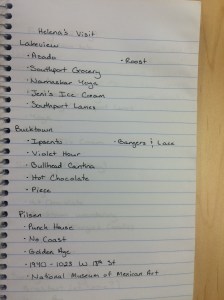 Helena's Visit
Lakeview
· Asado · Roost
· Southport Grocery
· Namaskar Yoga
· Jeni's Ice Cream
· Southport Lanes
Bucktown
· Ipsento · Bangers & Lace
· Violet Hour
· Bullhead Cantina
· Hot Chocolate
· Piece
Pilsen
· Punch House
· No Coast
· Golden Age
· 1940 - 1023 W 18th St
· National Museum of Mexican Art